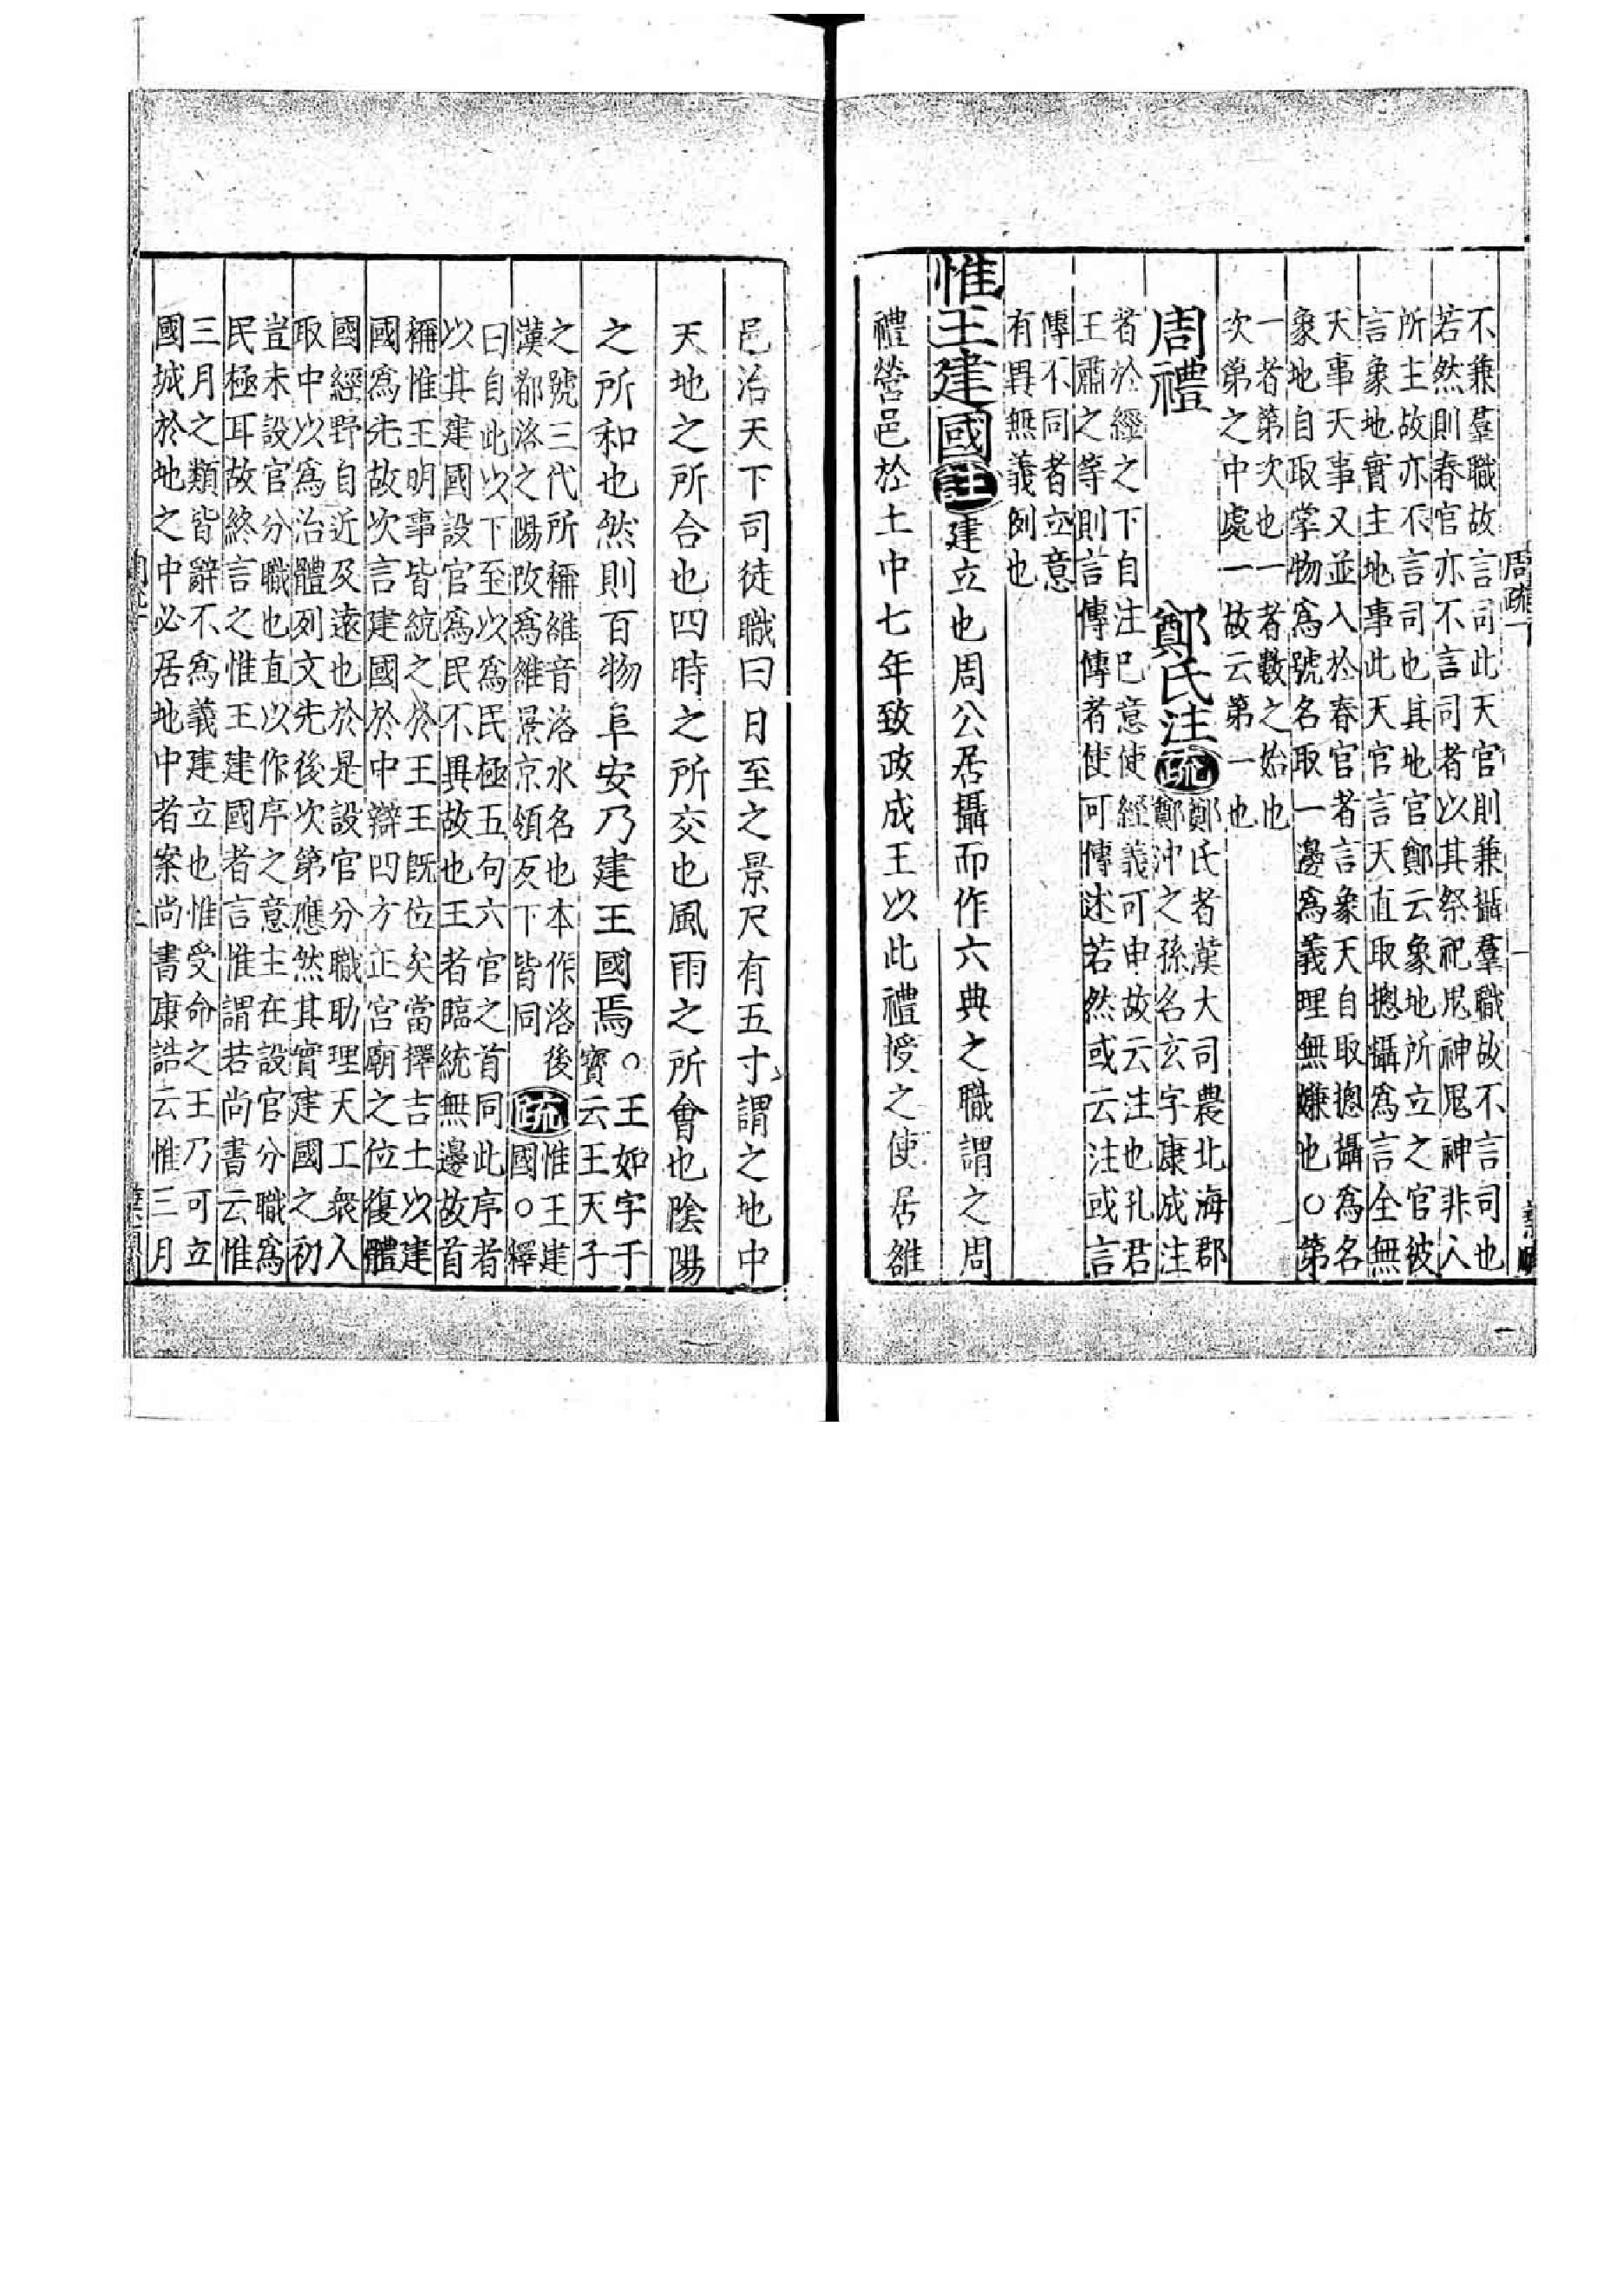 周疏一
一
不兼羣職故言司此天官則兼攝羣職故不言司也
若然則春官亦不言司者以其祭祀鬼神鬼神非人
所主故亦不言司也其地官鄭云象地所立之官彼
言象地實主地事此天官言天直取揔攝爲言全無
天事天事又並入於春官者言象天自取揔攝爲名
象地自取掌物爲號名取一邊爲義理無嫌也○第
一者第次也一者數之始也
次第之中處一故云第一也
周禮 鄭氏注
疏
鄭氏者漢大司農北海郡
鄭沖之孫名玄字康成注
者於經之下自注己意使經義可申故云注也孔君
王肅之等則言傳傳者使可傳述若然或云注或言
傳不同者立意
有異無義例也
惟王建國
註
建立也周公居攝而作六典之職謂之周
禮營邑於土中七年致政成王以此禮授之使居雒
邑治天下司徒職曰日至之景尺有五寸謂之地中
天地之所合也四時之所交也風雨之所會也陰陽
之所和也然則百物阜安乃建王國焉
○王如字于
寶云王天子
之號三代所稱維音洛水名也本作洛後
漢都洛之陽改爲雒景京領反下皆同
疏
惟王建
國○釋
曰自此以下至以爲民極五句六官之首同此序者
以其建國設官爲民不異故也王者臨統無邊故首
稱惟王明事皆統之於王王既位矣當擇吉土以建
國爲先故次言建國於中辯四方正宮廟之位復體
國經野自近及遠也於是設官分職助理天工衆人
取中以爲治體列文先後次第應然其實建國之初
豈未設官分職也直以作序之意主在設官分職爲
民極耳故終言之惟王建國者言惟謂若尚書云惟
三月之類皆辭不爲義建立也惟受命之王乃可立
國城於地之中必居地中者案尚書康誥云惟三月